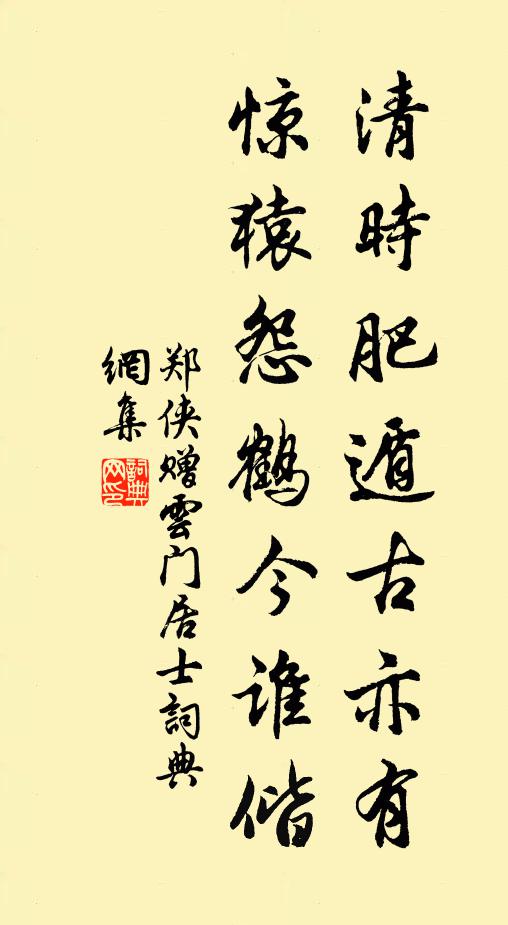 清時肥遁古亦有
惊猿怨鹤今谁偕
郑侠赠雲门居士詞典
網集
詞典网印